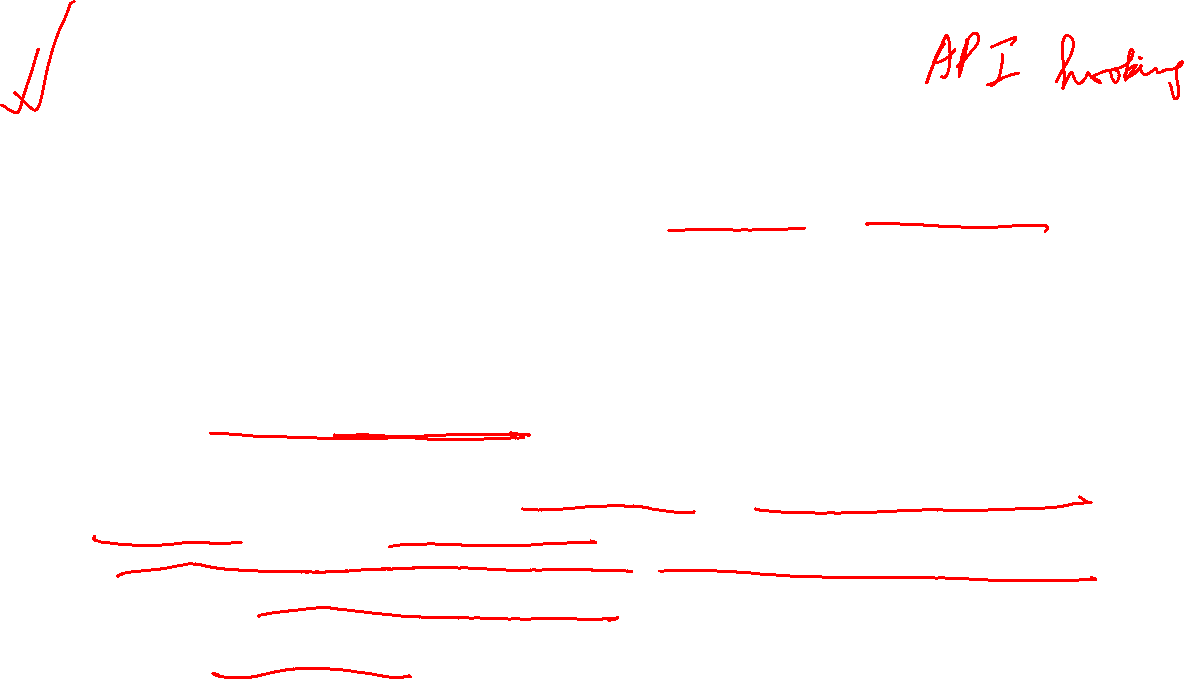 API hooking